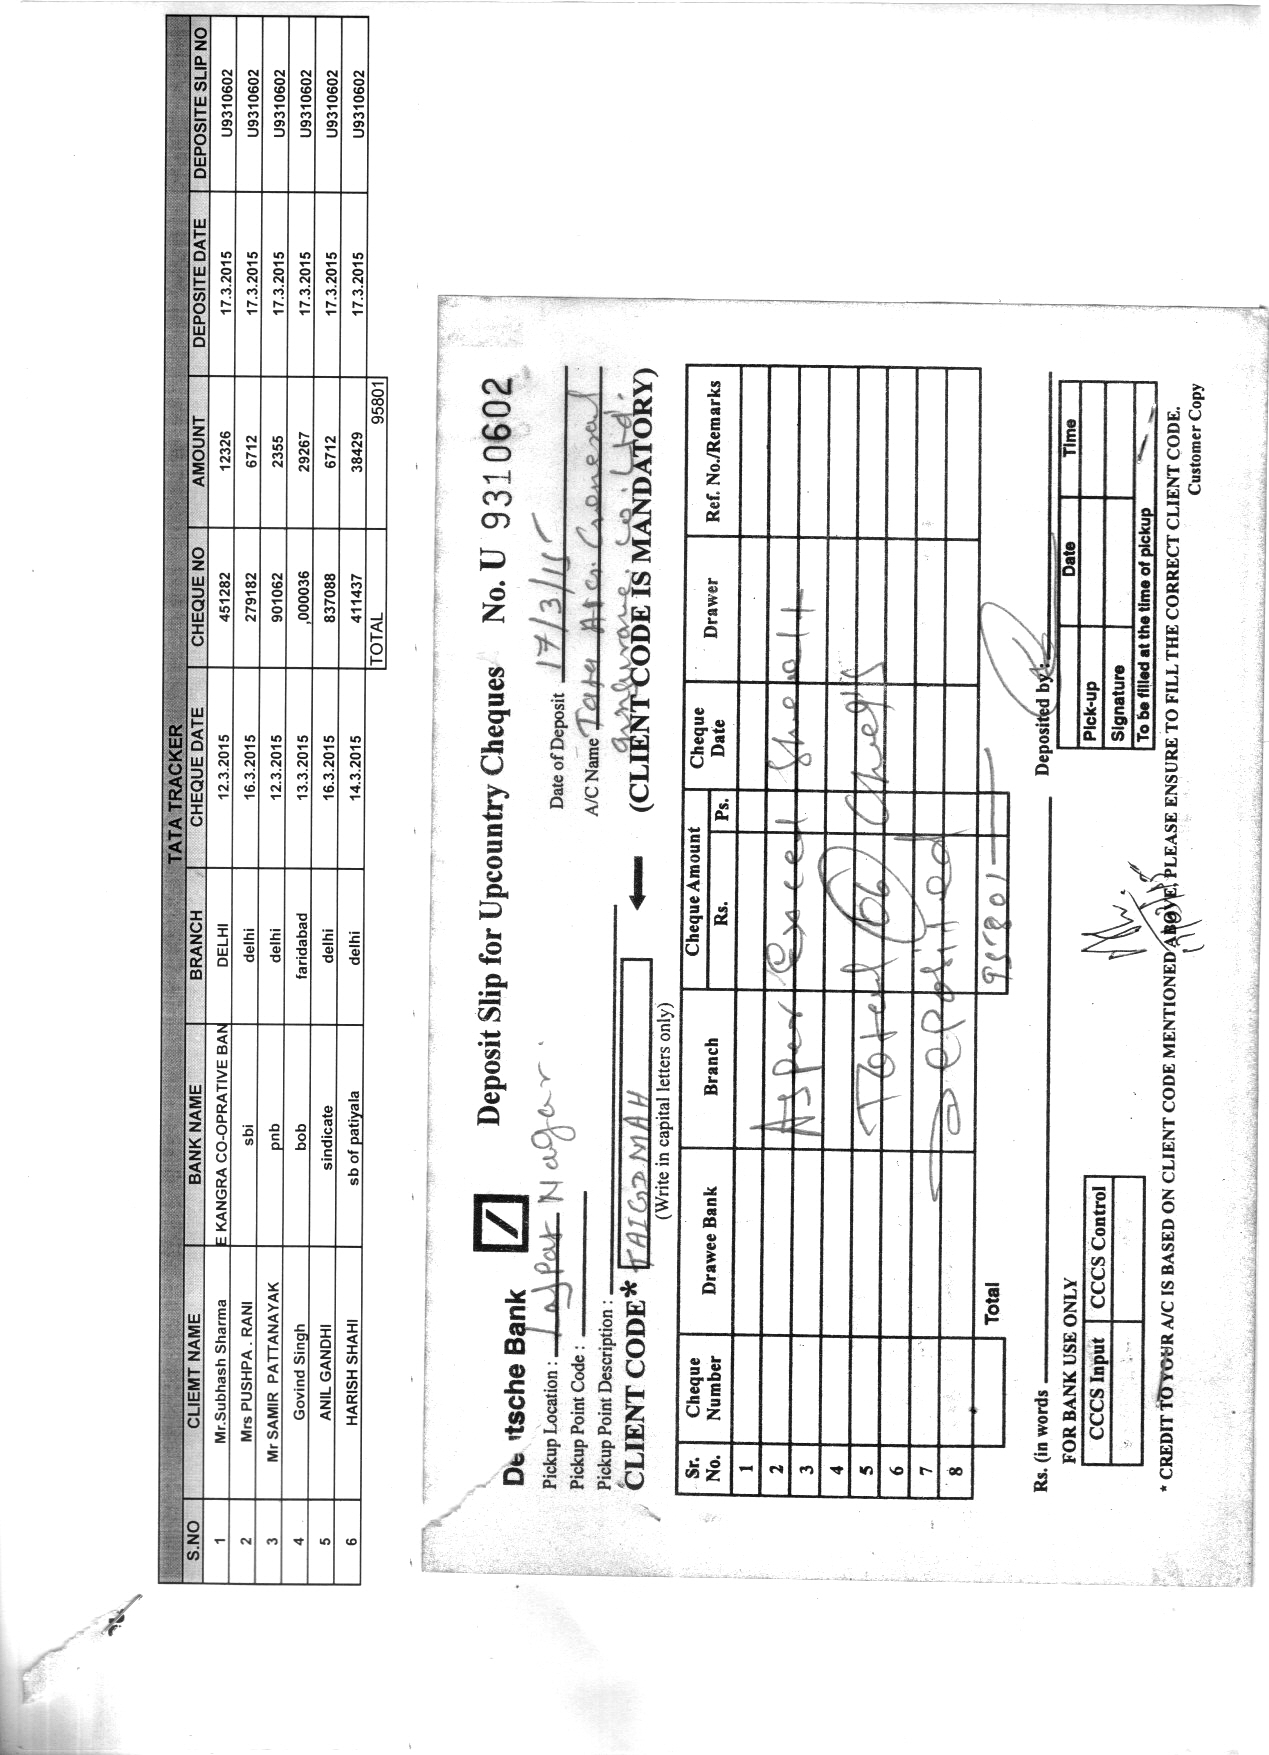 TATA TRACKER
S.NO CLIEMT NAME BANK NAME BRANCH CHEQUE DATE CHEQUE NO AMOUNT DEPOSITE DATE DEPOSITE SLIP NO
1 Mr.Subhash Sharma E KANGRA CO-OPRATIVE BAN DELHI 12.3.2015 451282 12326 17.3.2015 U9310602
2 Mrs PUSHPA . RANI sbi delhi 16.3.2015 279182 6712 17.3.2015 U9310602
3 Mr SAMIR PATTANAYAK pnb delhi 12.3.2015 901062 2355 17.3.2015 U9310602
4 Govind Singh bob faridabad 13.3.2015 ,000036 29267 17.3.2015 U9310602
5 ANIL GANDHI sindicate delhi 16.3.2015 837088 6712 17.3.2015 U9310602
6 HARISH SHAHI sb of patiyala delhi 14.3.2015 411437 38429 17.3.2015 U9310602
TOTAL 95801
Deutsche Bank Deposit Slip for Upcountry Cheques No. U 9310602
Pickup Location : Lajpat Nagar. Date of Deposit 17/3/15
Pickup Point Code : A/C Name Tata AIG General
Pickup Point Description : Insurance. Co. Ltd.
CLIENT CODE* TAIGDMAH (CLIENT CODE IS MANDATORY)
(Write in capital letters only)
Sr. No. Cheque Number Drawee Bank Branch Cheque Amount Rs. Ps. Cheque Date Drawer Ref. No./Remarks
1
2 Asper Excel Sheett
3
4
5 Total 06 Cheq's
6
7 Deposited
8
Total 95801
Rs. (in words Deposited by :
FOR BANK USE ONLY
CCCS Input CCCS Control
Date Time
Pick-up
Signature
To be filled at the time of pickup
* CREDIT TO YOUR A/C IS BASED ON CLIENT CODE MENTIONED ABOVE, PLEASE ENSURE TO FILL THE CORRECT CLIENT CODE.
Customer Copy